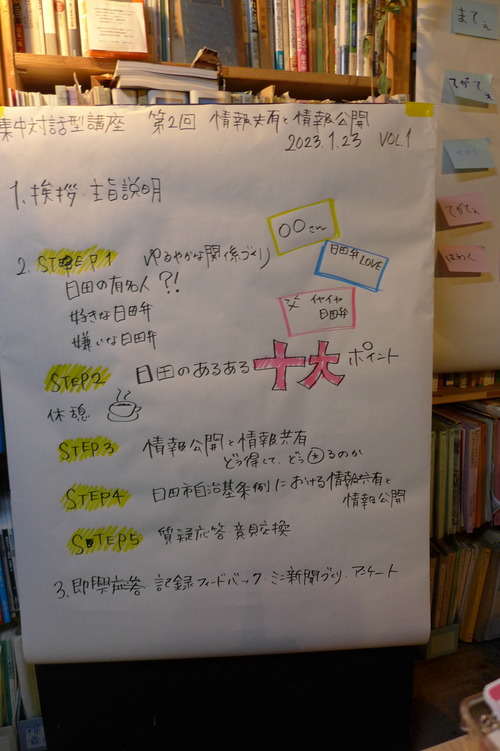 集中対話型講座 第2回 情報共有と情報公開
2023.1.23 VOL.1
1. 挨拶・主旨説明
2. STEP1 ゆるやかな関係づくり
日田の有名人?!
好きな日田弁
嫌いな日田弁
〇〇さん
日田弁LOVE
イヤイヤ
日田弁
STEP2 日田のあるある十大ポイント
休憩
STEP3 情報公開と情報共有
どう得して、どう㋐るのか
STEP4 日田市自治基条例における情報共有と
情報公開
STEP5 質疑応答・意見交換
3. 即興応答 記録フィードバック・ミニ新聞づくり・アンケート
まてぇ
てがてぇ
てがてぇ
はわく